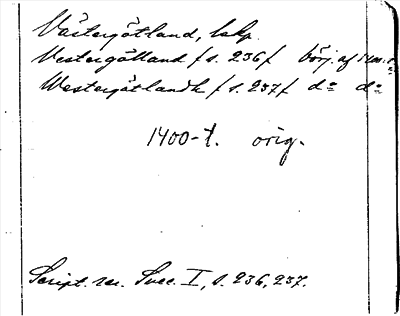 Västergötland, lskp.
Vestergötland /s. 236/ börj. af 1400-t.
Westergötlandh /s. 237/ d:o d:o
1400-t. orig.
Script. rer. Svec. I, s. 236, 237.